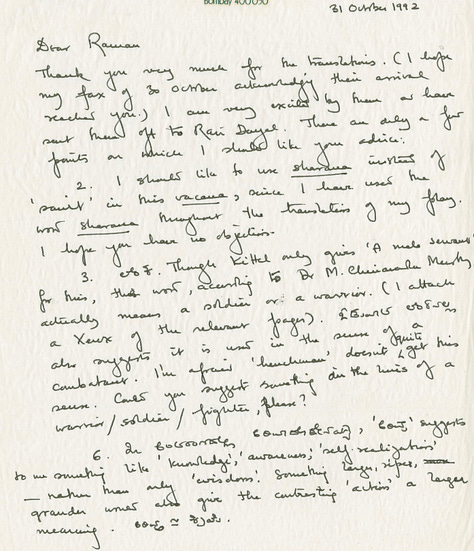 Bombay 400050
31 October 1992
Dear Raman
Thank you very much for the translations. (I hope
my fax of 30 October acknowledging their arrival
reached you.) I am very excited by them and have
sent them off to Ravi Dayal. There are only a few
points on which I should like your advice:
2. I should like to use sharana instead of
'saint' in this vacana, since I have used the
word sharana throughout the translation of my play.
I hope you have no objection.
3. Though Kittel only gives 'A male servant'
for this, the word, according to Dr M. Chidananda Murthy
actually means a soldier or a warrior. (I attach
a Xerox of the relevant pages).
also suggests it is used in the sense of a
combatant. I'm afraid 'henchman' doesn't quite get this
sense. Could you suggest something on the lines of a
warrior/soldier/fighter, please?
6. In suggests
to me something like 'knowledge', 'awareness', 'self realization'
— rather than only 'wisdom'. Something larger, riper,
grander would also give the contrasting 'action' a larger
meaning.